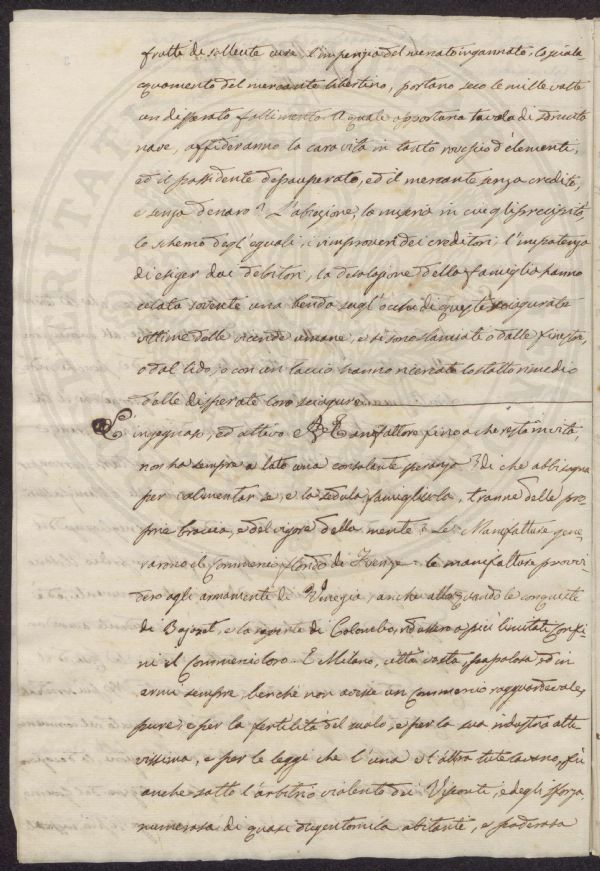 frutti di solerte cura, l'imperizia del mercato ingannato, lo
del mercante libertino, portano seco le mille volte
un disperato fallimento. A quale opportuna tavola di sdrucita
nave, affideranno la cara vita in tanto rovescio d'elementi,
ed il possidente depauperato, ed il mercante senza credito,
e senza denaro? L'abiezione, la miseria in cui egli precipitò,
lo scherno degl'eguali, i rimproveri dei creditori, l'impotenza
di esiger dai debitori, la desolazione della famiglia hanno
calata sovente una benda sugl'occhi di queste sciagurate
vittime delle vicende umane, e si sono lanciate o dalle finestre,
o dal lido, o con un laccio hanno ricercato lo stolto rimedio
dalle disperate loro sciagure.
L'ingegnoso, ed attivo Manifattore fino a che resta in vita,
non ha sempre a lato una consolante speranza? Di che abbisogna
per alimentar se, e la sedula famigliola, tranne delle pro-
prie braccia, e del vigore della mente? Le Manifatture gene-
rarono il Commercio florido di Firenze. le manifatture provvi-
dero agli armamenti di Vinegia, anche allor quando le conquiste
di Bajazet, e le scoperte di Colombo, ridussero a più limitati confi-
ni il Commercio loro. E Milano, città vasta, popolosa ed in
armi sempre, benchè non avesse un Commercio ragguardevole,
pure, e per la fertilità del suolo, e per la sua industria atti-
vissima, e per le leggi che l'una e l'altra tutelavano, fù
anche sotto l'arbitrio violento dei Visconti, e degli Sforza
numerosa di quasi trecentomila abitanti, e poderosa